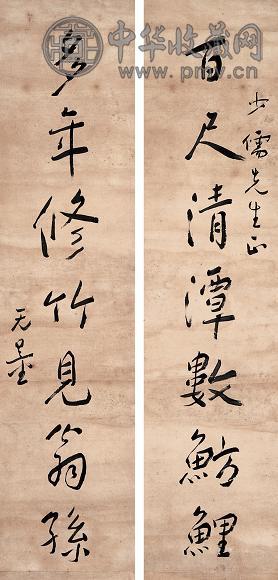 中华收藏网
www.pmvv.cn
少儒先生正
百尺清潭數魴鯉
多年修竹見翁孫
无量